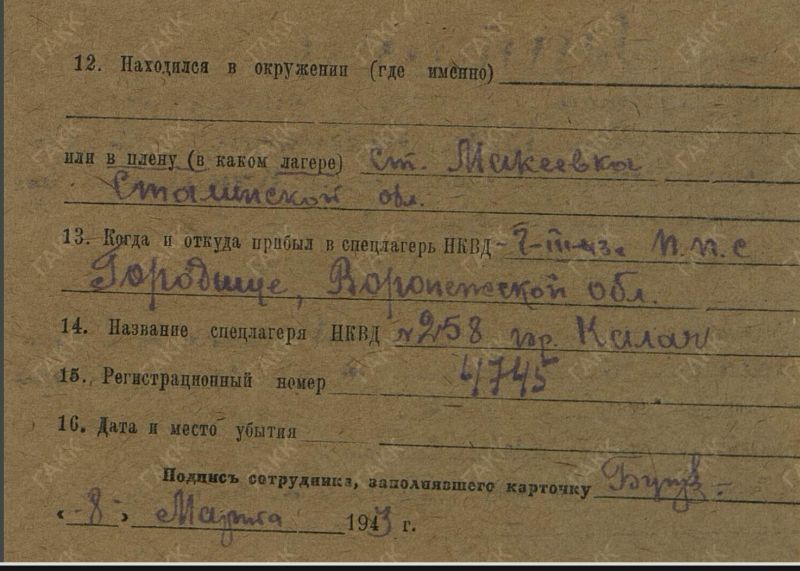 12. Находился в окружении (где именно)
или в плену (в каком лагере) Ст. Макеевка
Сталинской обл.
13. Когда и откуда прибыл в спецлагерь НКВД - п.п.с
Городище, Воронежской обл.
14. Название спецлагеря НКВД №258 гор. Калач
15. Регистрационный номер 4745
16. Дата и место убытия
Подпись сотрудника, заполнявшего карточку
«8» Марта 1943 г.